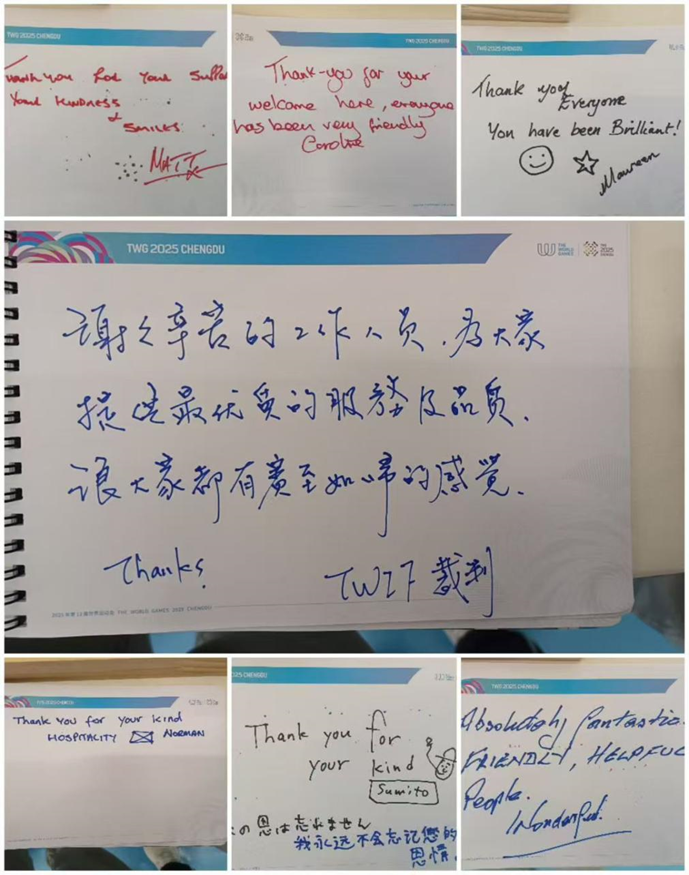 TWG 2025 CHENGDU
Thank you for your Suppo
Your KINDNESS
&
SMILES
MATT x
TWG 2025 CHENGDU
Thank-you for your
welcome here, everyone
has been very friendly
Caroline
TWG 2025 CHENGDU
Thank you
Everyone
You have been Brilliant!
Maureen
TWG 2025 CHENGDU
THE WORLD GAMES
謝々辛苦的工作人员,為大家
提供最优質的服務及品質.
讓大家都有賓至如歸的感覺.
Thanks.
TWIF 裁判
2025年第12届世界运动会 THE WORLD GAMES 2025 CHENGDU
Thank you for your kind
HOSPITALITY NORMAN
2025 CHENGDU
Thank you for
your kind
Sumito
の恩は忘れません
我永远不会忘记您的
恩情.
TWG 2025 CHENGDU
Absolutely fantastic.
FRIENDLY, HELPFUL
People.
Wonderful.